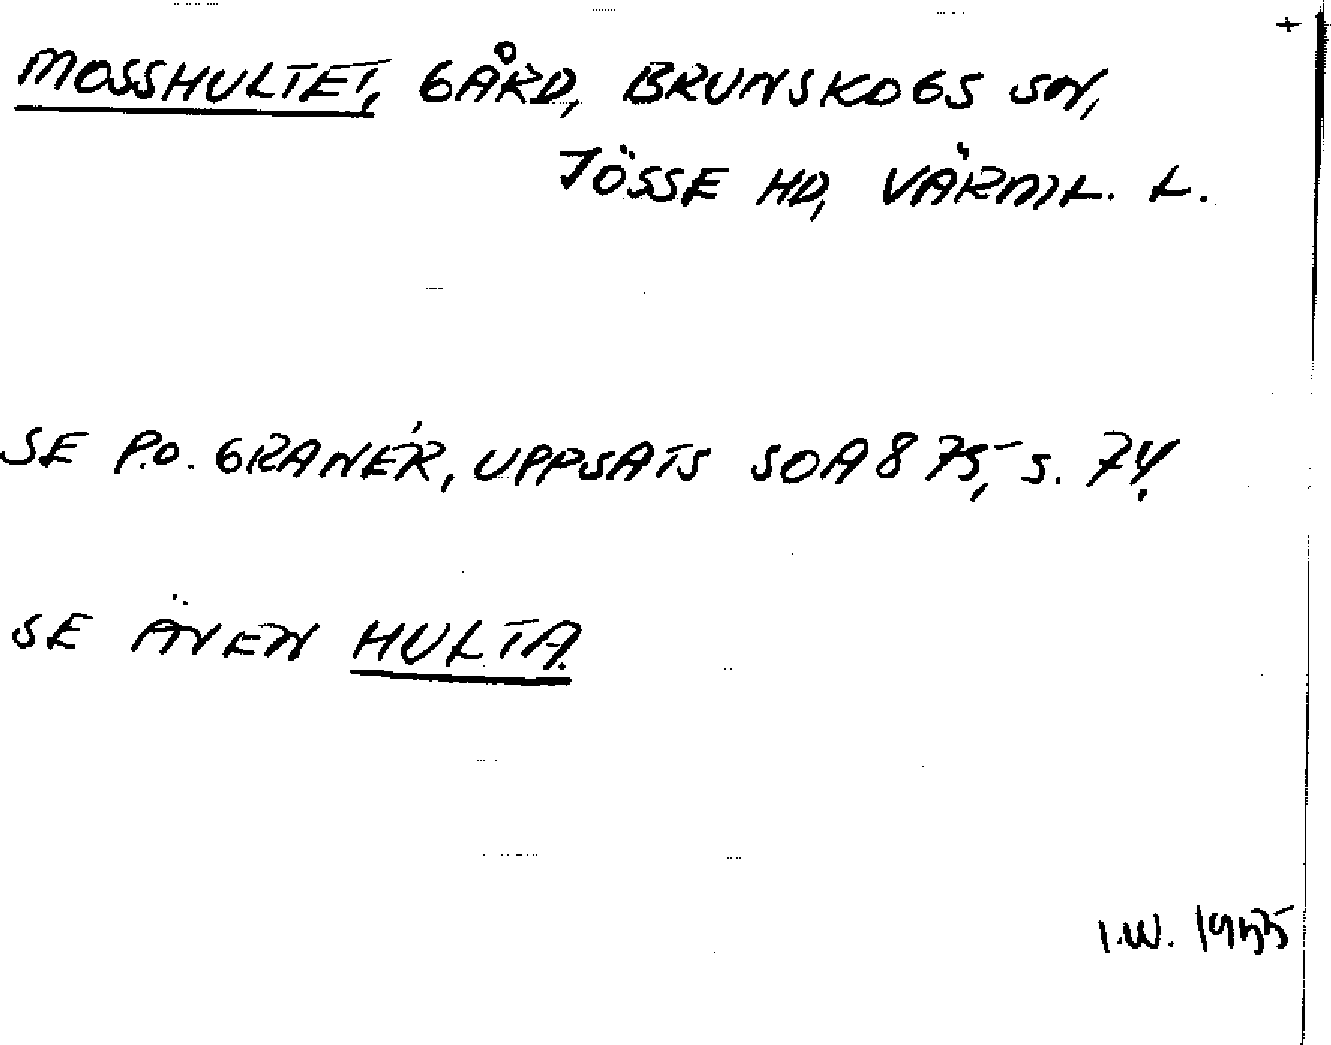 +
MOSSHULTET, GÅRD, BRUNSKOGS SN,
JÖSSE HD, VÄRML. L.
SE P.O. GRANÉR, UPPSATS SOA 875, S. 74.
SE ÄVEN HULTA.
I.W. 1955